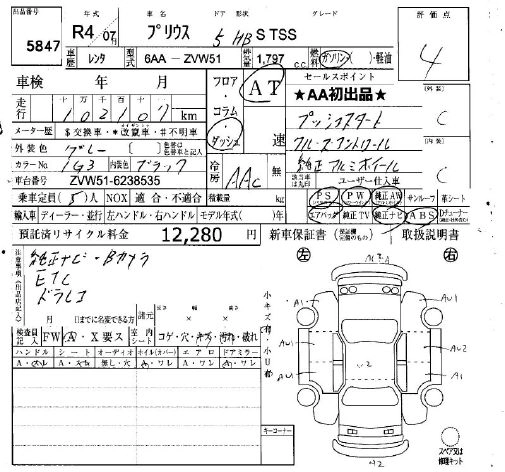 出品番号 年式 車名 ドア 形状 グレード 評価点
5847 R4 07月 プリウス 5 HB S TSS 4
車歴 レンタ 型式 6AA－ZVW51 排気量 1,797 c.c. 燃料 ガソリン・( )・軽油
車検 年 月 フロア・コラム・ダッシュ AT 速 セールスポイント
★AA初出品★
走行 十万 千百十 102107 km プッシュスタート 外装 C
メーター歴 $交換車・*改竄車・#不明車 クルーズコントロール
外装色 グレー 色替車は色替車と記入 純正アルミホイール 内装 C
カラーNo 1G3 内装色 ブラック 冷房 AAC 無
車台番号 ZVW51-6238535 ユーザー仕入車
乗車定員 (5)人 NOX 適合・不適合 積載量 kg PS PW 純正AW サンルーフ 革シート
輸入車 ディーラー・並行 左ハンドル・右ハンドル モデル年式( )年 エアバッグ 純正TV 純正ナビ ABS
預託済リサイクル料金 12,280 円 新車保証書 取扱説明書
注意事項(出品店記入)
純正ナビ・Bカメラ
ETC
ドラレコ
左 右
月 日までに名変できる方 諸元
検査員記入 FW A・X要ス 室内シート コゲ・穴・キズ・汚れ・破れ
ハンドル シート オーディオ ホイル(カバー) エアロ ドアミラー
A・スレ 無し・穴 A・ワレ A・ワレ A・ワレ
小キズ有・小U有
A1 AU1
AU1 AU2
U2
AU1 A1
A2
キーコーナー
スペア又は修理キット